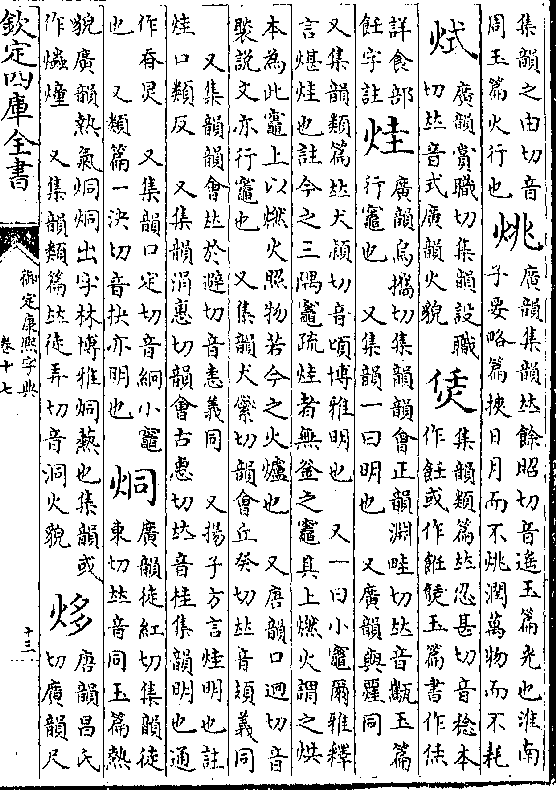 集韻之由切音
周玉篇火行也
烑
廣韻集韻𠀤餘昭切音遙玉篇光也淮南
子要略篇挾日月而不烑潤萬物而不耗
烒
廣韻賞職切集韻設職
切𠀤音式廣韻火貌
㶵
集韻類篇𠀤忍甚切音稔本
作飪或作䭃䭓玉篇書作恁
詳食部
飪字註
烓
廣韻烏攜切集韻韻會正韻淵畦切𠀤音窐玉篇
行竈也 又集韻一曰明也 又廣韻與䙬同
又集韻類篇𠀤犬熲切音頃博雅明也 又一曰小竈爾雅釋
言煁烓也註今之三隅竈疏烓者無釜之竈具上燃火謂之烘
本為此竈上以燃火照物若今之火爐也 又唐韻口迥切音
褧說文亦行竈也 又集韻犬縈切韻會丘癸切𠀤音頍義同
又集韻韻會𠀤於避切音恚義同 又揚子方言烓明也註
烓口類反 又集韻涓惠切韻會古惠切𠀤音桂集韻明也通
作眘炅 又集韻口定切音絅小竈
也 又類篇一決切音抉亦明也
烔
廣韻徒紅切集韻徒
東切𠀤音同玉篇熱
貌廣韻熱氣烔烔出字林博雅烔爇也集韻或
作爞燑 又集韻類篇𠀤徒弄切音洞火貌
㶴
唐韻昌氏
切廣韻尺
欽定四庫全書
御定康熙字典
卷十七
十三